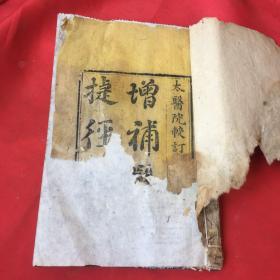 太醫院較訂
增補醫
捷徑